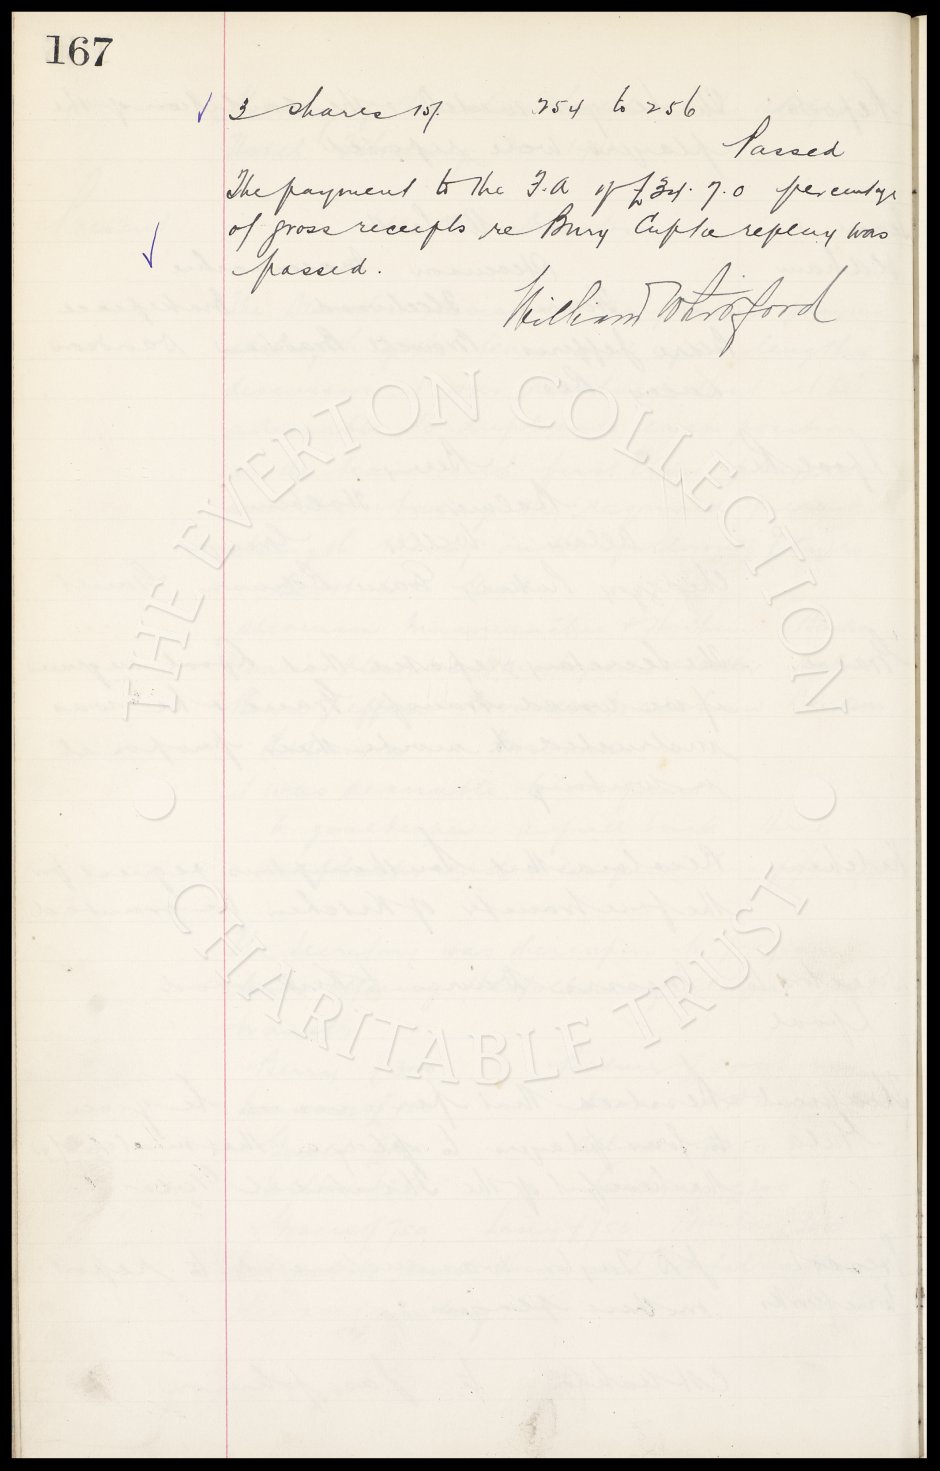 167
3 shares 15/. 254 to 256
Passed
The payment to the F.A of £34.7.0 percentage
of gross receipts re Bury Cuptie replay was
passed.
William Whitford
THE EVERTON COLLECTION
CHARITABLE TRUST